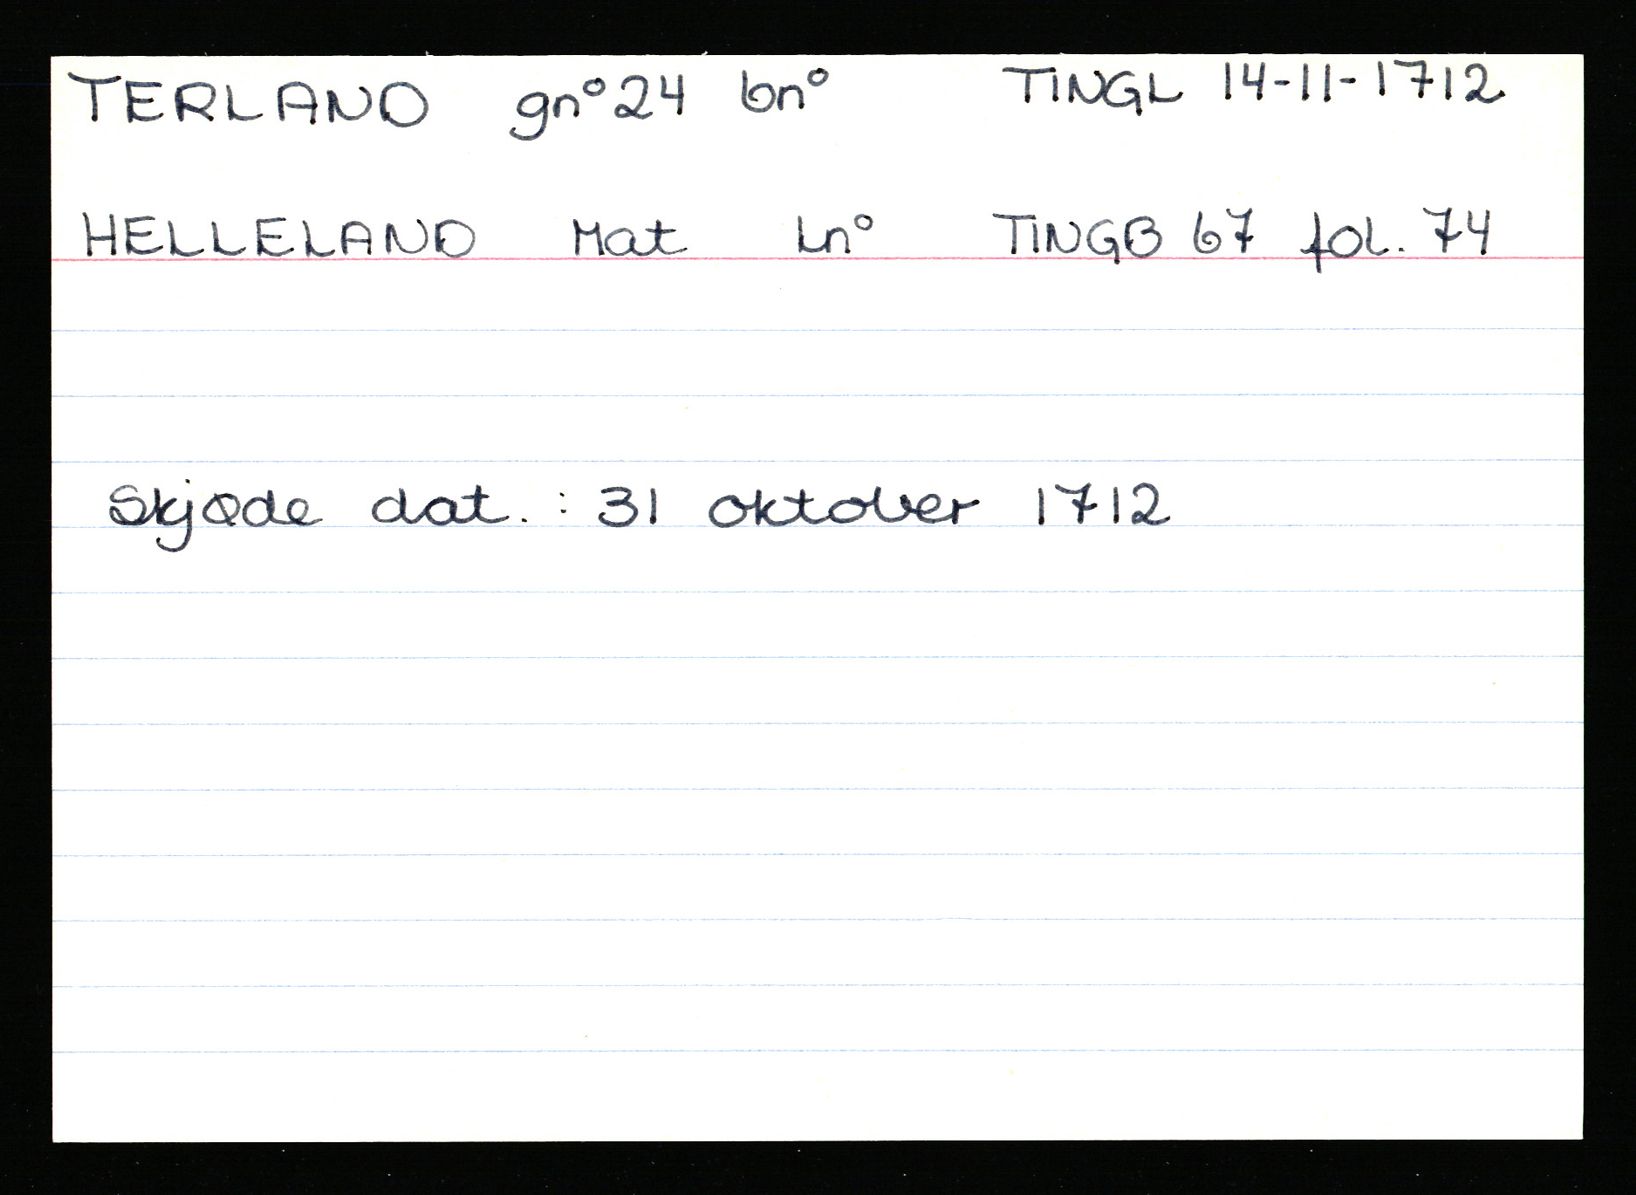 TERLAND gnº 24 bnº TINGL 14-11-1712
HELLELAND Mat Lnº TINGB 67 fol. 74
Skjøde dat. : 31 oktober 1712